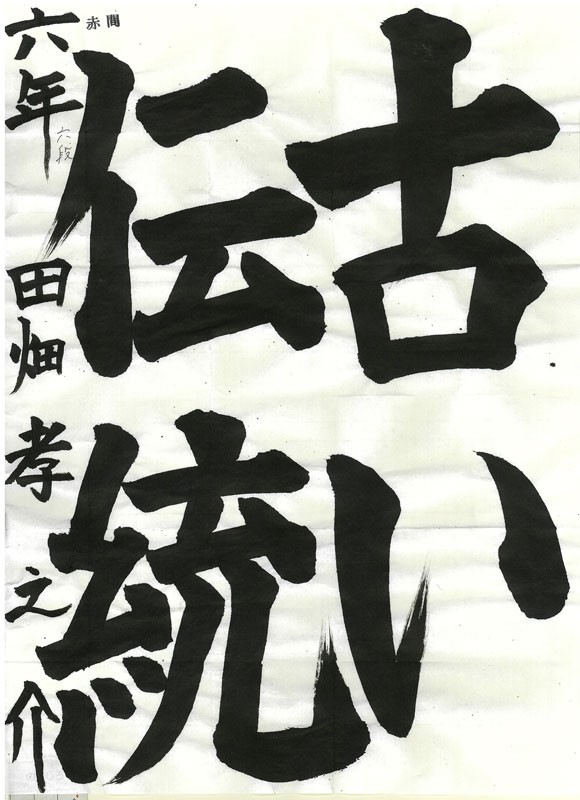 古い
伝統
赤間
六年 田畑孝之介
六段